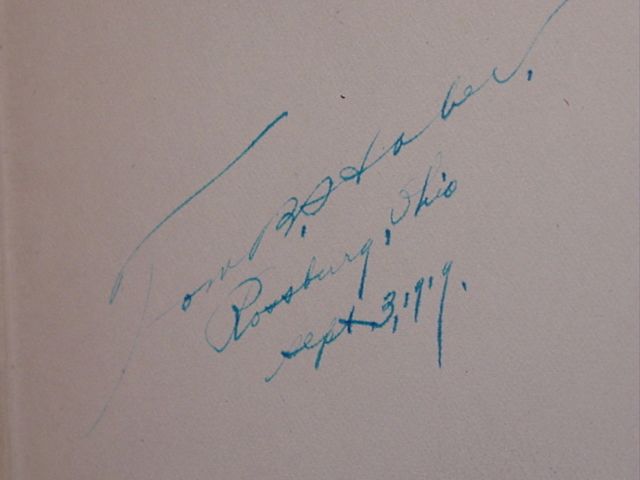 Tom B. Haber.
Rossburg, Ohio
Sept 3, 1919.